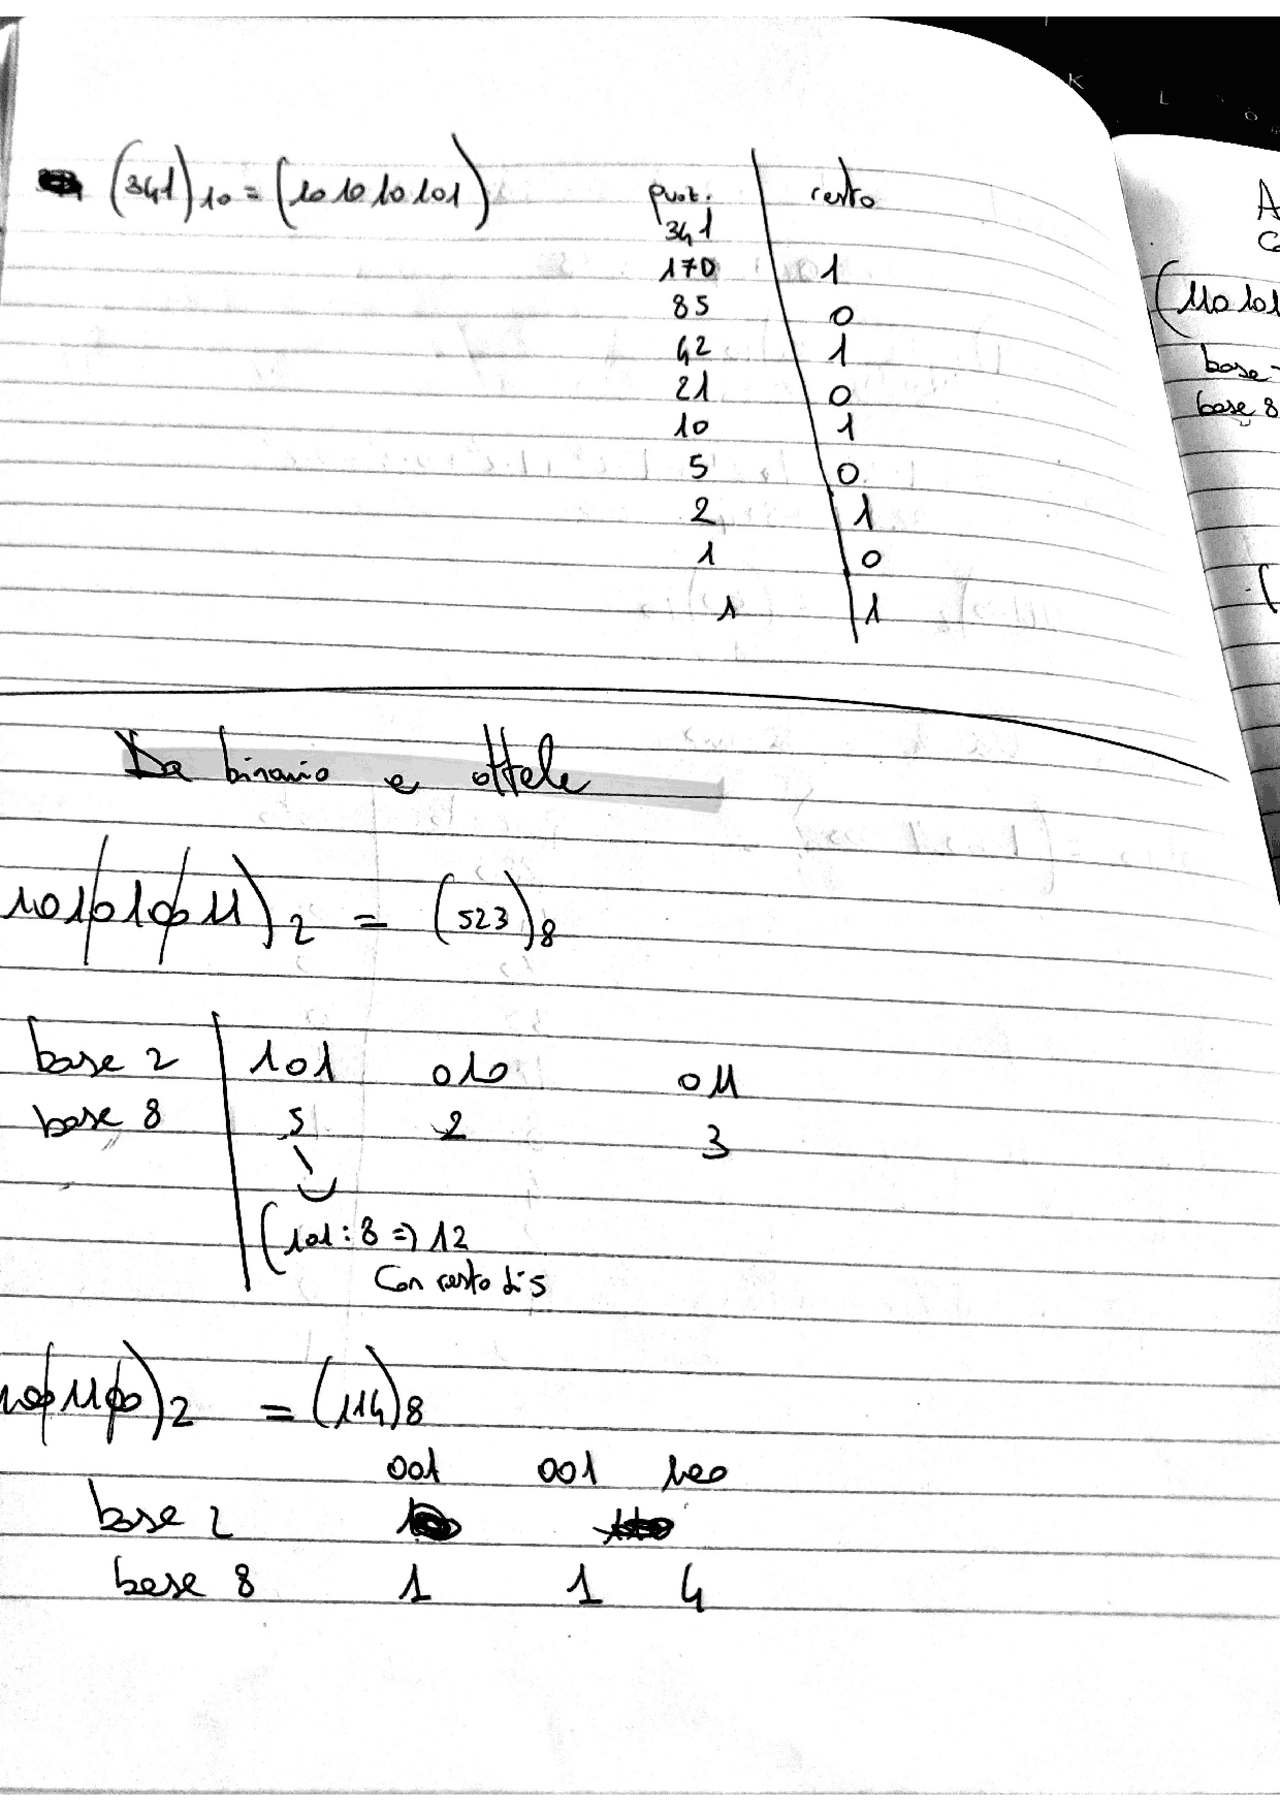 (341)10 = (101010101)
quot. resto
341
170 1
85 0
42 1
21 0
10 1
5 0
2 1
1 0
1 1
Da binario a ottale
101|010|011)2 = (523)8
base 2 101 010 011
base 8 5 2 3
(101:8 => 12
Con resto di 5
)2 = (114)8
001 001 100
base 2
base 8 1 1 4
(110 101
base
base 8